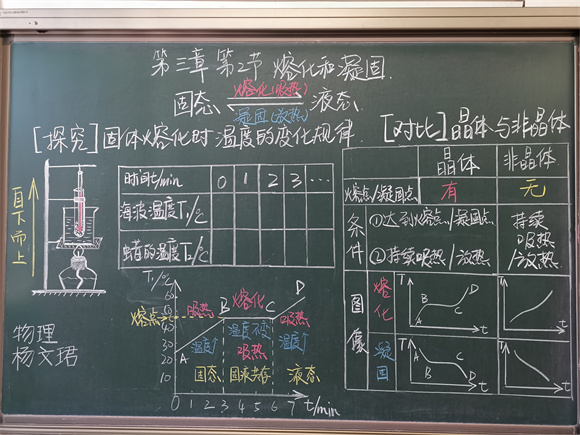 第三章第2节 熔化和凝固
熔化(吸热)
固态 液态
凝固(放热)
[探究]固体熔化时温度的变化规律
[对比]晶体与非晶体
自下而上
时间t/min 0 1 2 3 …
海波温度T₁/℃
蜡的温度T₂/℃
晶体 非晶体
熔点/凝固点 有 无
条件 ①达到熔点/凝固点 持续吸热/放热
②持续吸热/放热
图像 熔化 T A B C D t T t
凝固 T A B C D t T t
T₁/℃
60
熔点
40
30
20
10
吸热 熔化 吸热
A B C D
温度↑ 温度不变 温度↑
吸热
固态 固液共存 液态
0 1 2 3 4 5 6 7 t/min
物理
杨文珺